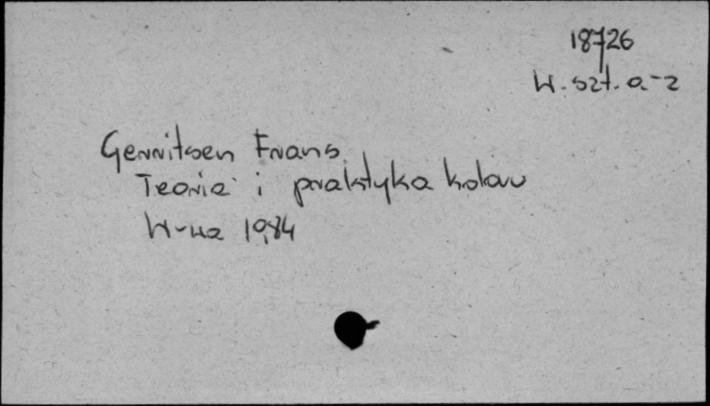 18726
W. szt. a-z
Gerritsen Frans
Teoria i praktyka koloru
W-wa 1984